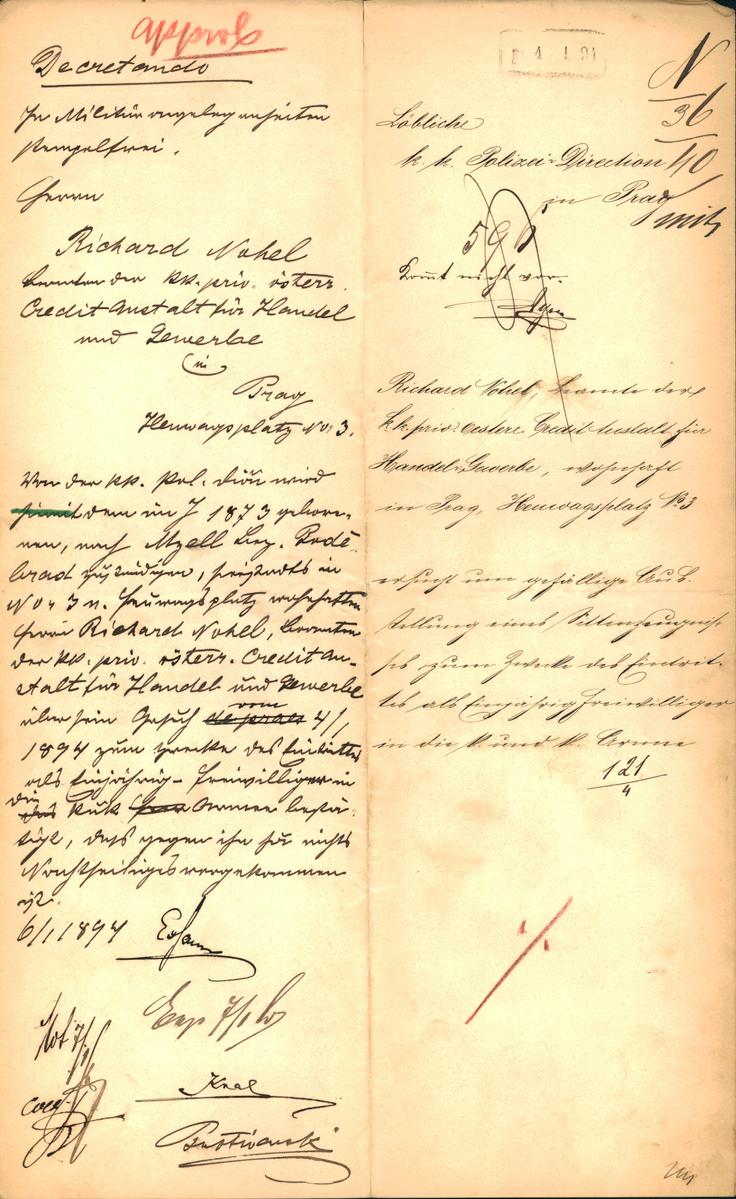 approb
Decretando
In Militärangelegenheiten
stempelfrei.
Herrn
Richard Nohel
Beamten der kk. priv. österr.
Credit Anstalt für Handel
und Gewerbe
in
Prag
Heuwagsplatz No: 3.
Von der kk. Pol. Dion wird
hiemit dem im J 1873 gebore-
nen, nach Mzell Bez. Podě-
brad zuständigen, hierstadts in
No: 3 n. Heuwagsplatz wohnhaften
Herrn Richard Nohel, Beamten
der kk. priv. österr. Credit An-
stalt für Handel und Gewerbe
über sein Gesuch vom 4/1
1894 zum Zwecke des Eintrittes
als Einjährig-Freiwilliger in
die kuk Armee bestä-
tigt, dass gegen ihn hs. nichts
Nachtheiliges vorgekommen
ist.
6/1 1894
Exp 7/1
Kral
4 I
N
36
40
mit
Löbliche
k. k. Polizei-Direction
in Prag
Kommt nicht vor.
Richard Nohel, Beamte der
k.k. priv. oesterr. Credit-Anstalt für
Handel u. Gewerbe, wohnhaft
in Prag, Heuwagsplatz No 3
ersucht um gefällige Aus-
stellung eines Sittenzeugnis-
ses zum Zwecke des Eintrit-
tes als Einjährig Freiwilliger
in die k. und k. Armee
121
4
·/.